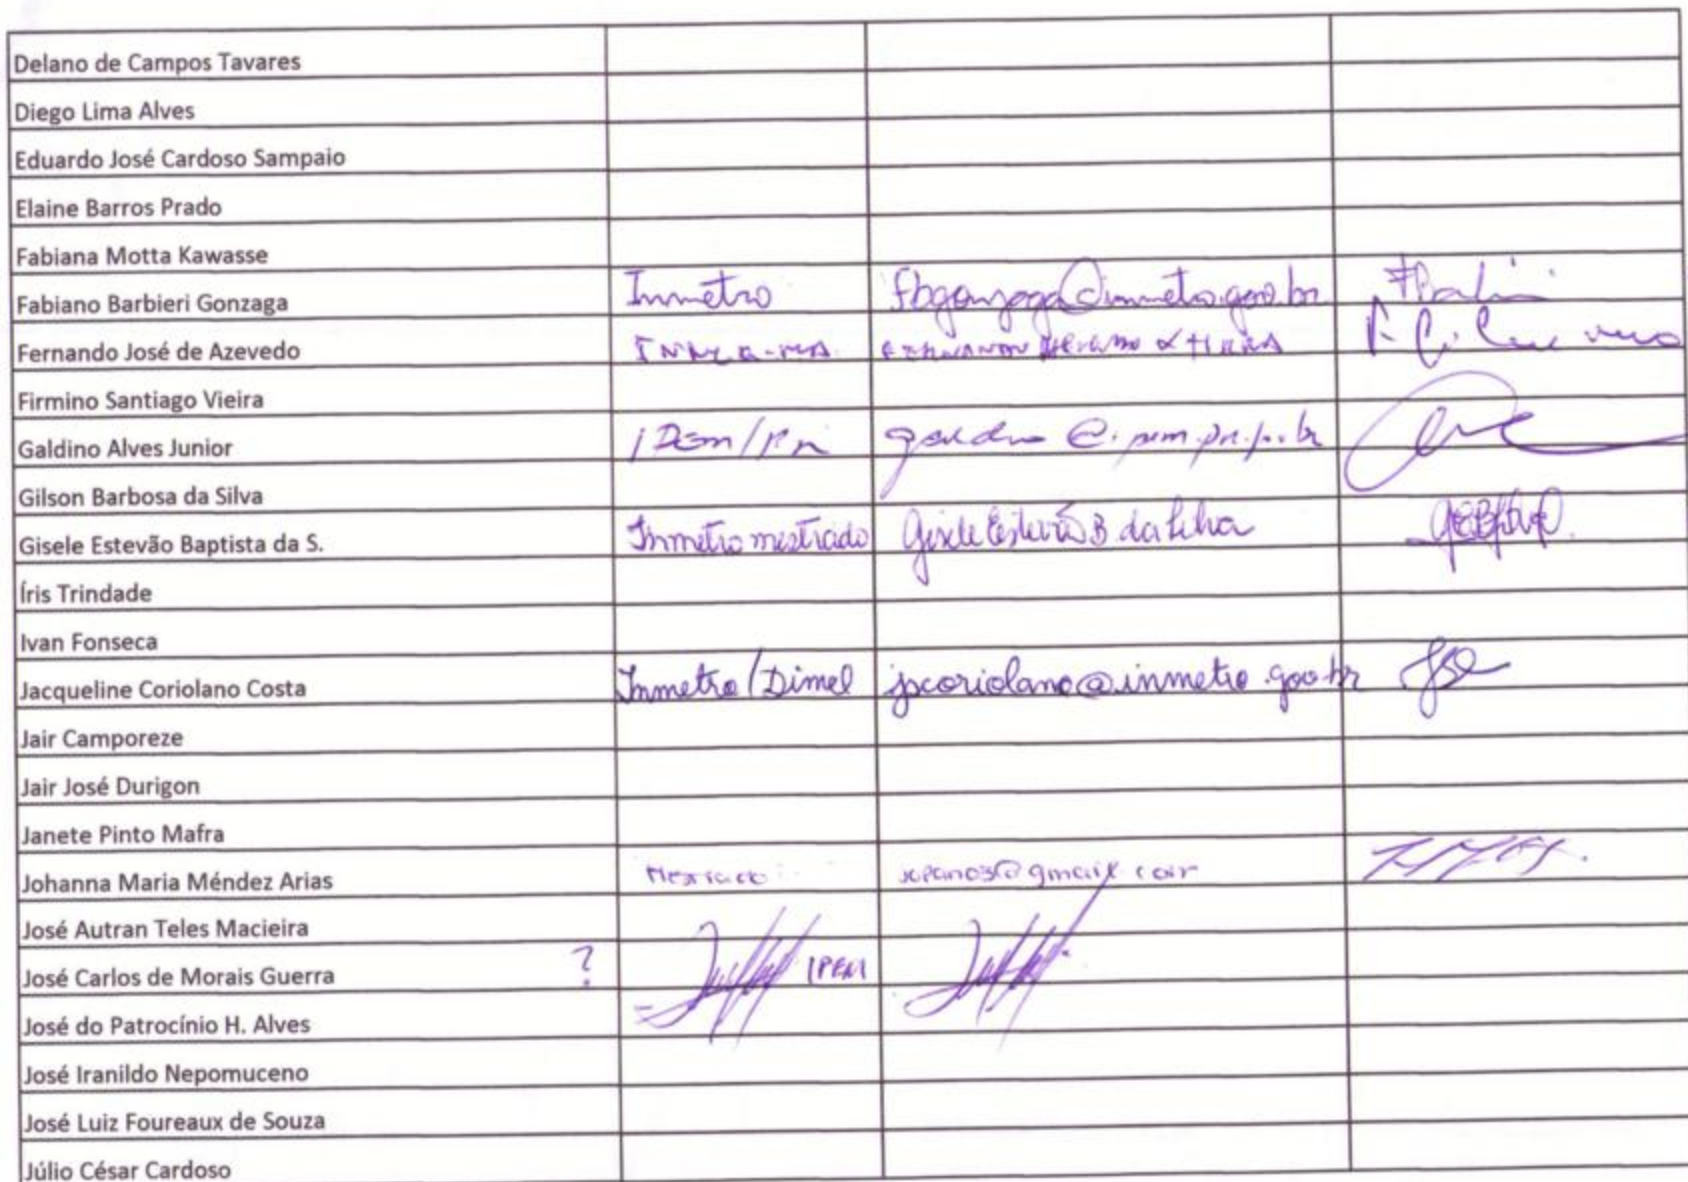 Delano de Campos Tavares
Diego Lima Alves
Eduardo José Cardoso Sampaio
Elaine Barros Prado
Fabiana Motta Kawasse
Fabiano Barbieri Gonzaga Inmetro fbgonzaga@inmetro.gov.br
Fernando José de Azevedo
Firmino Santiago Vieira
Galdino Alves Junior
Gilson Barbosa da Silva
Gisele Estevão Baptista da S. Inmetro mestrado Gisele Estevão B da Silva
Íris Trindade
Ivan Fonseca
Jacqueline Coriolano Costa Inmetro/Dimel jpcoriolano@inmetro.gov.br
Jair Camporeze
Jair José Durigon
Janete Pinto Mafra
Johanna Maria Méndez Arias
José Autran Teles Macieira
José Carlos de Morais Guerra ? IPEM
José do Patrocínio H. Alves
José Iranildo Nepomuceno
José Luiz Foureaux de Souza
Júlio César Cardoso